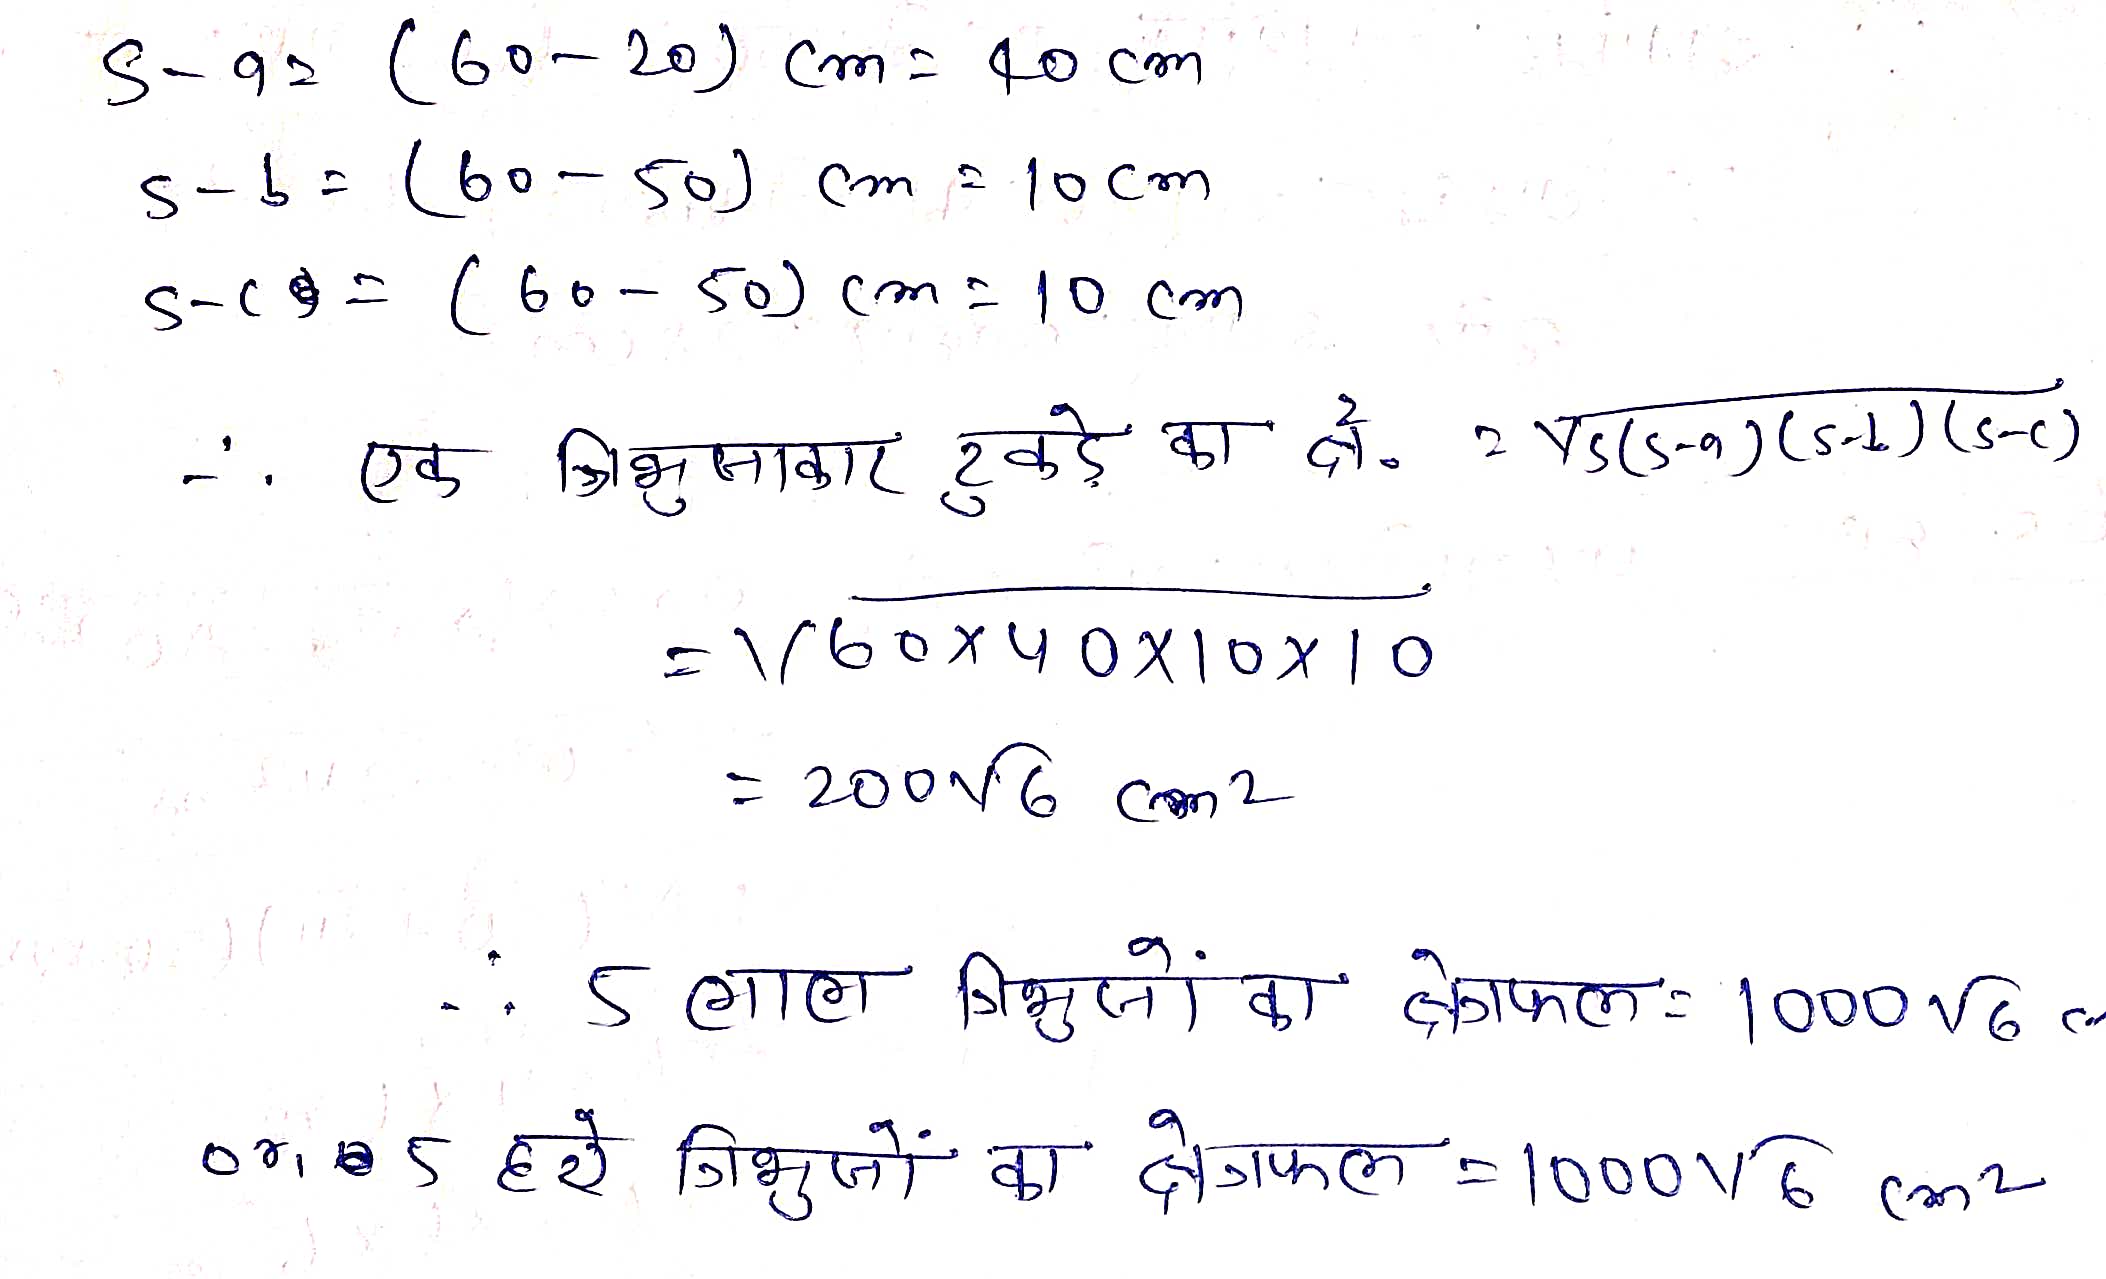 S-a= (60-20) cm = 40 cm
s-b = (60-50) cm = 10 cm
s-c = (60-50) cm = 10 cm
∴ एक त्रिभुजाकार टुकड़े का क्षे. = √s(s-a)(s-b)(s-c)
= √60×40×10×10
= 200√6 cm2
∴ 5 लाल त्रिभुजों का क्षेत्रफल = 1000√6 c
or, 5 हरे त्रिभुजों का क्षेत्रफल = 1000√6 cm2